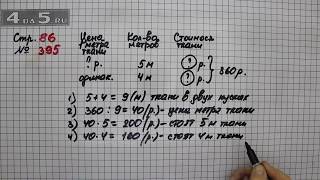 4 на 5.ru
Стр. 86
№ 395
Цена 1 метра ткани
Кол-во метров
Стоимость ткани
? р. 5 м ? р.
одинак. 4 м ? р. } 360 р.
1) 5+4=9(м) ткани в двух кусках
2) 360:9=40(р.)-цена метра ткани
3) 40·5=200(р.)-стоят 5 м ткани
4) 40·4=160(р.)-стоят 4 м ткани